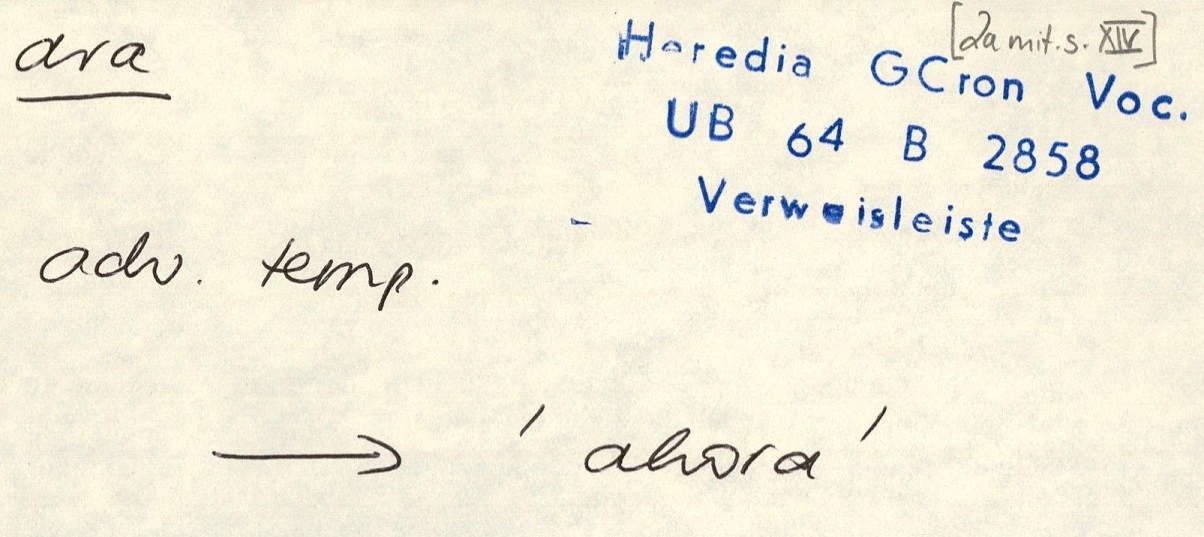 ara
[2a mit. s. XIV]
Heredia GCron Voc.
UB 64 B 2858
Verweisleiste
adv. temp.
→ 'ahora'